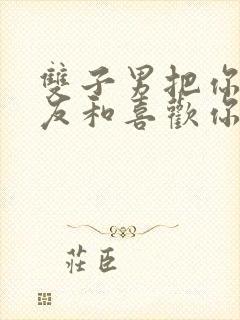 雙子男把你
友和喜歡你
莊臣